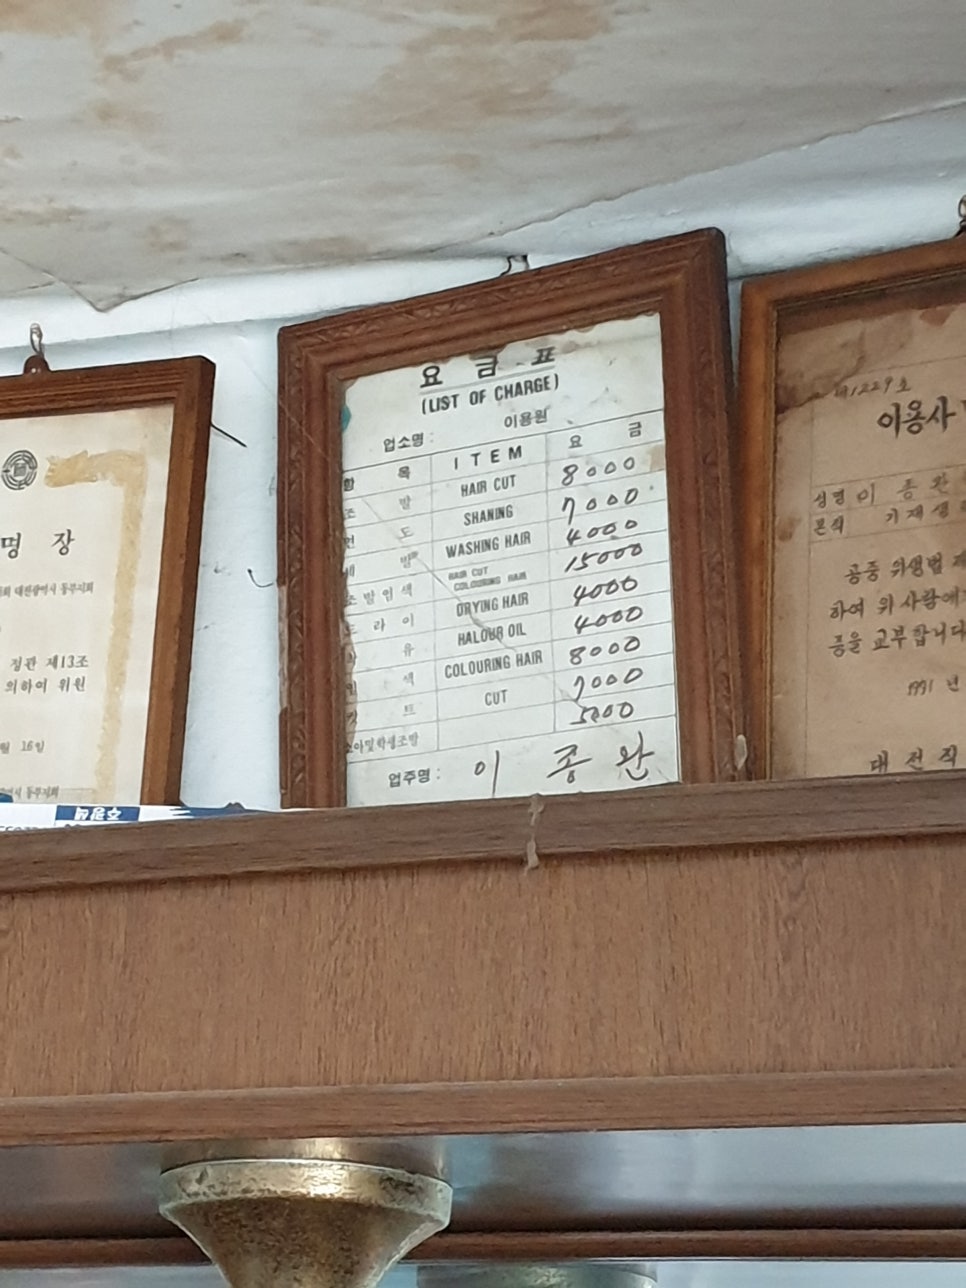 명 장
정관 제13조
의하여 위원
월 16일
요 금 표
(LIST OF CHARGE)
업소명 : 이용원
항 목 ITEM 요 금
조 발 HAIR CUT 8000
면 도 SHANING 7000
세 발 WASHING HAIR 4000
조발염색 HAIR CUT COLOURING HAIR 15000
드라이 DRYING HAIR 4000
유 HALOUR OIL 4000
염 색 COLOURING HAIR 8000
컷 트 CUT 7000
소아및학생조발 5000
업주명 : 이 종 완
제1229호
이용사
성명 이 종 완
본적
공중 위생법
하여 위 사람에
증을 교부합니다
1991 년
대 전 직